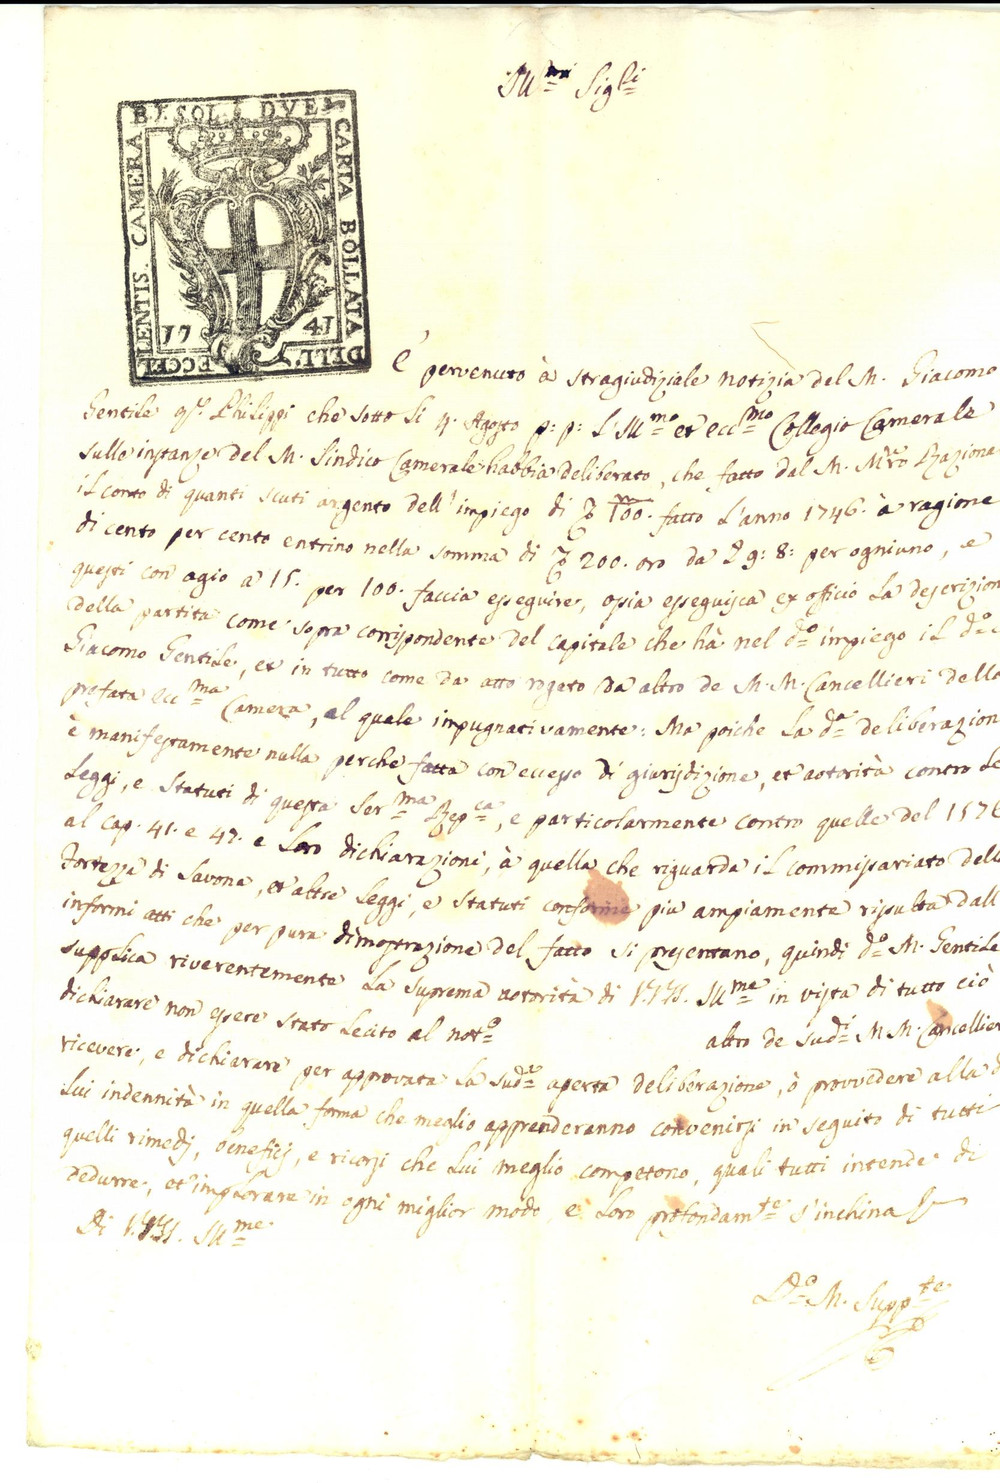 BI SOLI DVE
CARTA BOLLATA
DELL' ECCEL
LENTIS. CAMERA
1741
Ill.mi Sig.ri
È pervenuto à stragiudiziale notizia del M. Giacomo
Gentile q. Philippi che sotto li 4. Agosto p: p: l'Ill.mo et ecc.mo Collegio Camerale
sulle instanze del M. Sindico Camerale habbia deliberato, che fatto dal M. M.ro Raziona
il conto di quanti scuti argento dell'impiego di 100. fatto l'anno 1746. à ragione
di cento per cento entrino nella somma di 200. oro da £ 9: 8: per ogniuno, e
questi con agio a 15. per 100. faccia esseguire, ossia esseguisca ex officio la descrizion
della partita come sopra corrispondente del capitale che hà nel d.o impiego il d.o
Giacomo Gentile, et in tutto come da atto rogato da altro de M. M. Cancellieri della
prefata ecc.ma Camera, al quale impugnativamente: Ma poiche la d.a deliberazion
è manifestamente nulla perche fatta con eccesso di giurisdizione, et autorità contro le
Leggi, e Statuti di questa Ser.ma Rep.ca, e particolarmente contro quelle del 1576
al cap. 41. e 47. e loro dichiarazioni, à quella che riguarda il commissariato dell
Fortezza di Savona, et altre Leggi, e Statuti conforme piu ampiamente risulta dall
informi atti che per pura dimostrazione del fatto si presentano, quindi d.o M. Gentile
supplica riverentemente la suprema autorità di VV.SS. Ill.me in vista di tutto ciò
dichiarare non essere stato lecito al not.o altro de sud.i M M. Cancellier
ricevere, e dichiarare per approvata la sud.a aperta deliberazione, ò provvedere alla d
lui indennità in quella forma che meglio apprenderanno convenirsi in seguito di tutti
quelli rimedj, beneficj, e ricorsi che lui meglio competono, quali tutti intende di
dedurre, et implorare in ogni miglior modo, e loro profondam.te s'inchina
Di VV.SS. Ill.me
D.o M. Supp.te